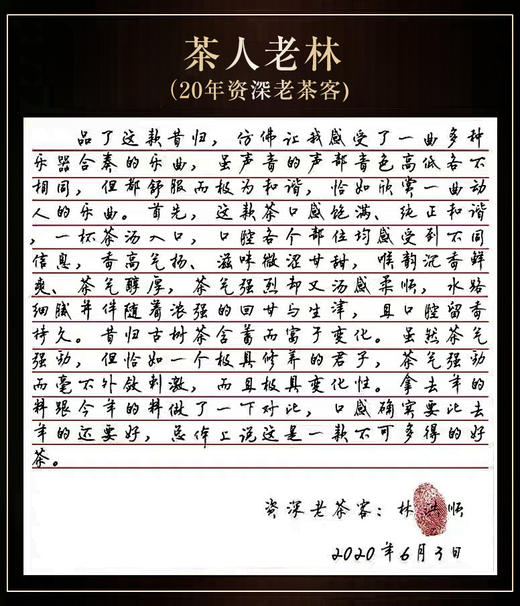 茶人老林
(20年资深老茶客)
品了这款昔归，仿佛让我感受了一曲多种
乐器合奏的乐曲，虽声音的声部音色高低各不
相同，但都舒服而极为和谐，恰如欣赏一曲动
人的乐曲。首先，这款茶口感饱满、纯正和谐
，一杯茶汤入口，口腔各个部位均感受到不同
信息，香高气扬、滋味微涩甘甜，喉韵沉香鲜
爽、茶气醇厚，茶气强烈却又汤感柔顺，水路
细腻并伴随着浓强的回甘与生津，且口腔留香
持久。昔归古树茶含蓄而富于变化。虽然茶气
强劲，但恰如一个极具修养的君子，茶气强劲
而毫不外敛刺激，而且极具变化性。拿去年的
料跟今年的料做了一下对比，口感确实要比去
年的还要好，总体上说这是一款不可多得的好
茶。
资深老茶客：林洪顺
2020年6月3日